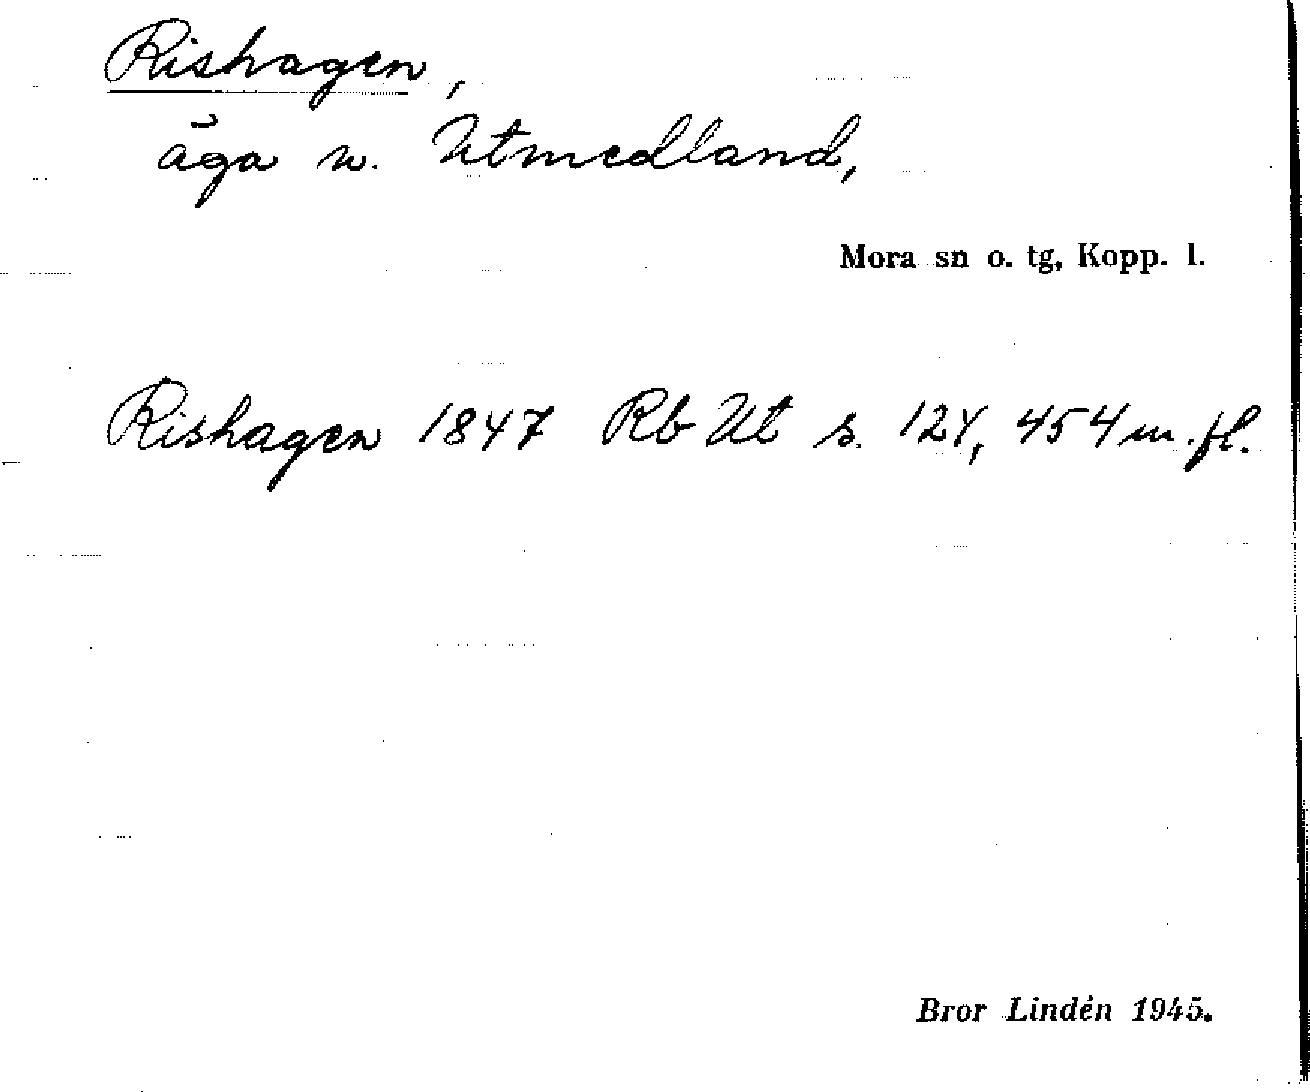 Rishagen,
äga n. Utmedland,
Mora sn o. tg, Kopp. l.
Rishagen 1847 Rb Ut s. 124, 454 m. fl.
Bror Lindén 1945.